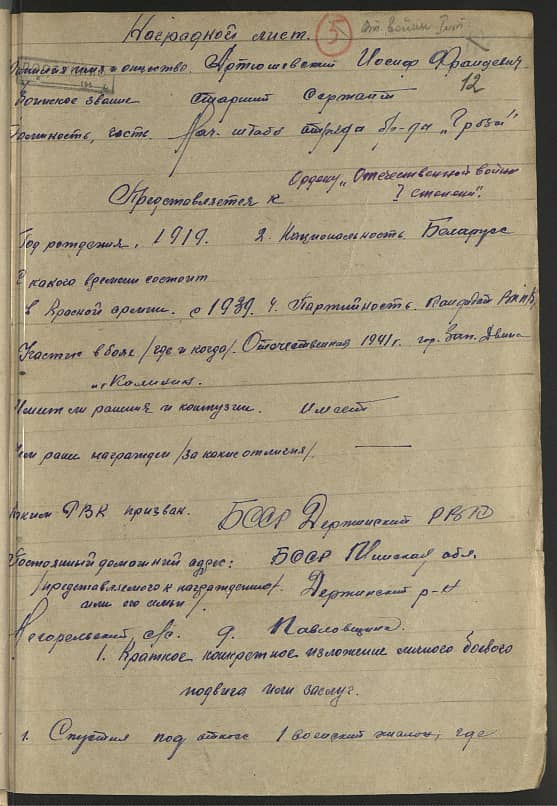 Наградной лист.
5
12
Фамилия имя и отчество. Артюшевский Иосиф Францевич
Воинское звание Старший Сержант
Должность, часть. Нач. штаба отряда бр-да „Гроза"
Представляется к Ордену „Отечественной войны
I степени".
Год рождения, 1919. 2. Национальность Беларус
С какого времени состоит
в Красной армии. с 1939. 4. Партийность. Кандидат ВКП(б)
Участие в боях /где и когда/. Отечественная 1941 г. гор. Зап. Двина
и г. Калинин.
Имеет ли ранения и контузии. Имеет
Чем ранее награжден /за какие отличия/. —
Каким РВК призван. БССР Держинский РВК
Постоянный домашний адрес: БССР Минская обл.
/представляемого к награждению Держинский р-н
или его семьи/.
Негорельский с/с. д. Павловщина.
1. Краткое конкретное изложение личного боевого
подвига или заслуг.
1. Спустил под откос 1 воинский эшалон, где